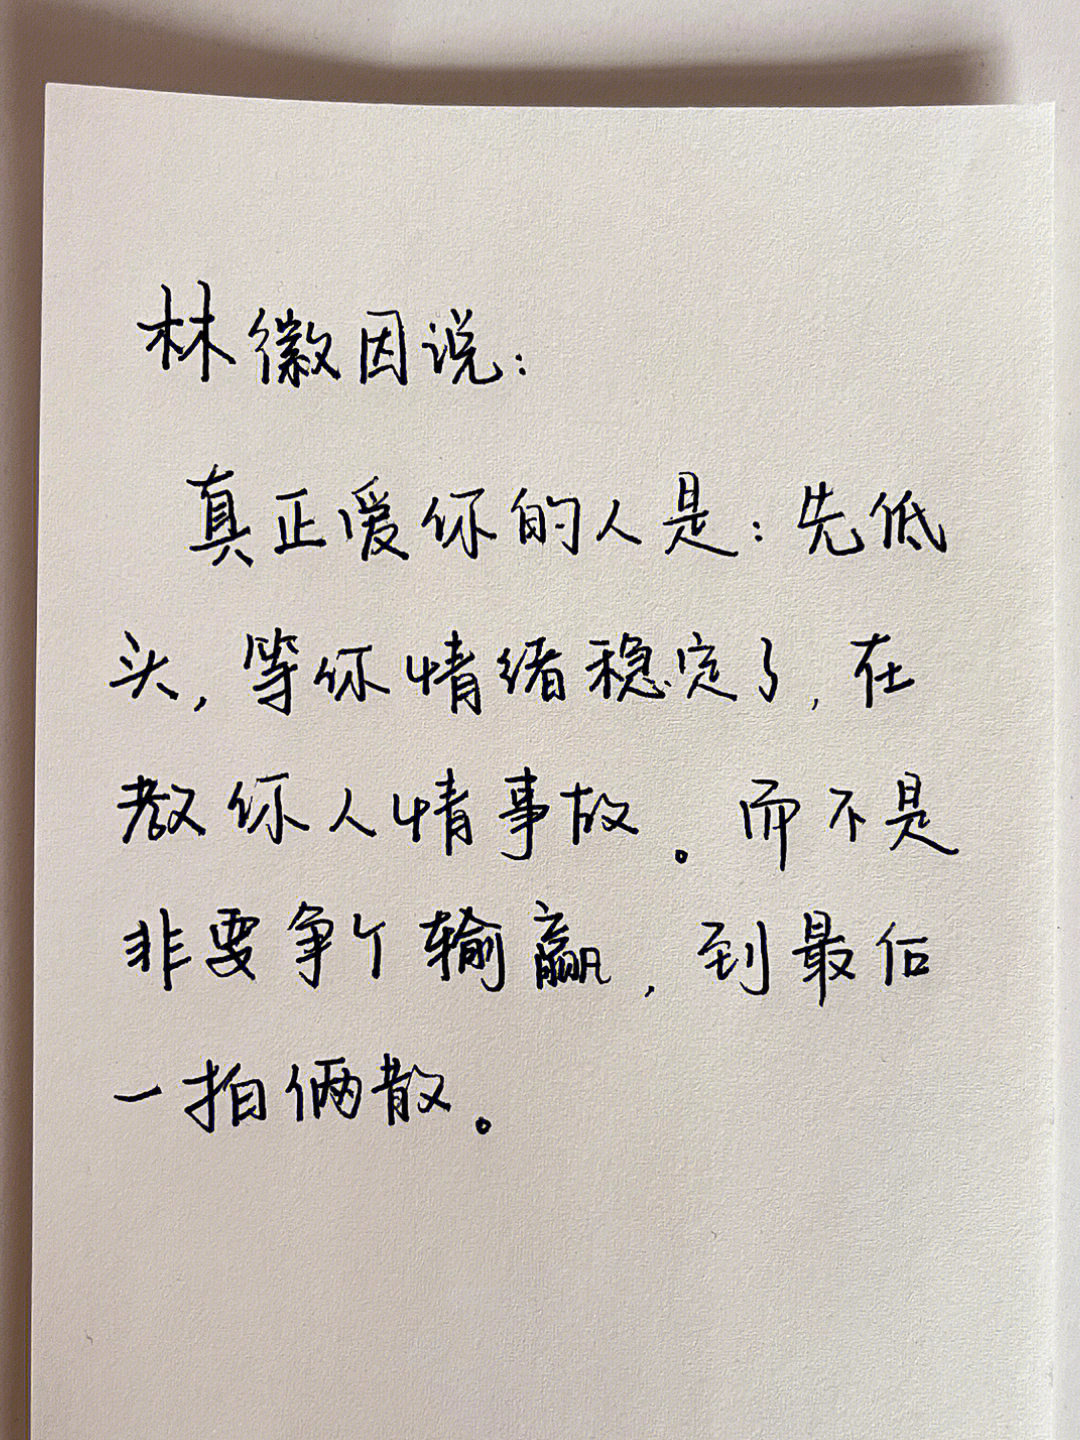 林徽因说：
真正爱你的人是：先低
头，等你情绪稳定了，在
教你人情事故。而不是
非要争个输赢，到最后
一拍俩散。